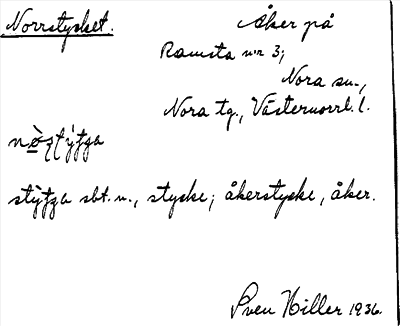 Norrstycket. Åker på
Ramsta nr 3;
Nora sn.,
Nora tg., Västernorrl. l.
stycke; åkerstycke, åker.
Sven Hiller 1936.